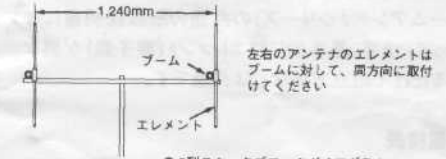 1,240mm
ブーム
左右のアンテナのエレメントは
ブームに対して、同方向に取付
けてください
エレメント